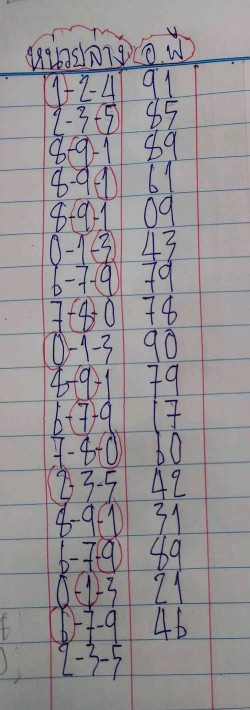 หน่วยล่าง อ.พี
1-2-4 91
2-3-5 85
8-9-1 89
8-9-1 61
8-9-1 09
0-1-3 43
6-7-9 79
7-8-0 78
0-1-3 90
8-9-1 79
6-7-9 17
7-8-0 60
2-3-5 42
8-9-1 31
6-7-9 89
0-1-3 21
6-7-9 46
2-3-5